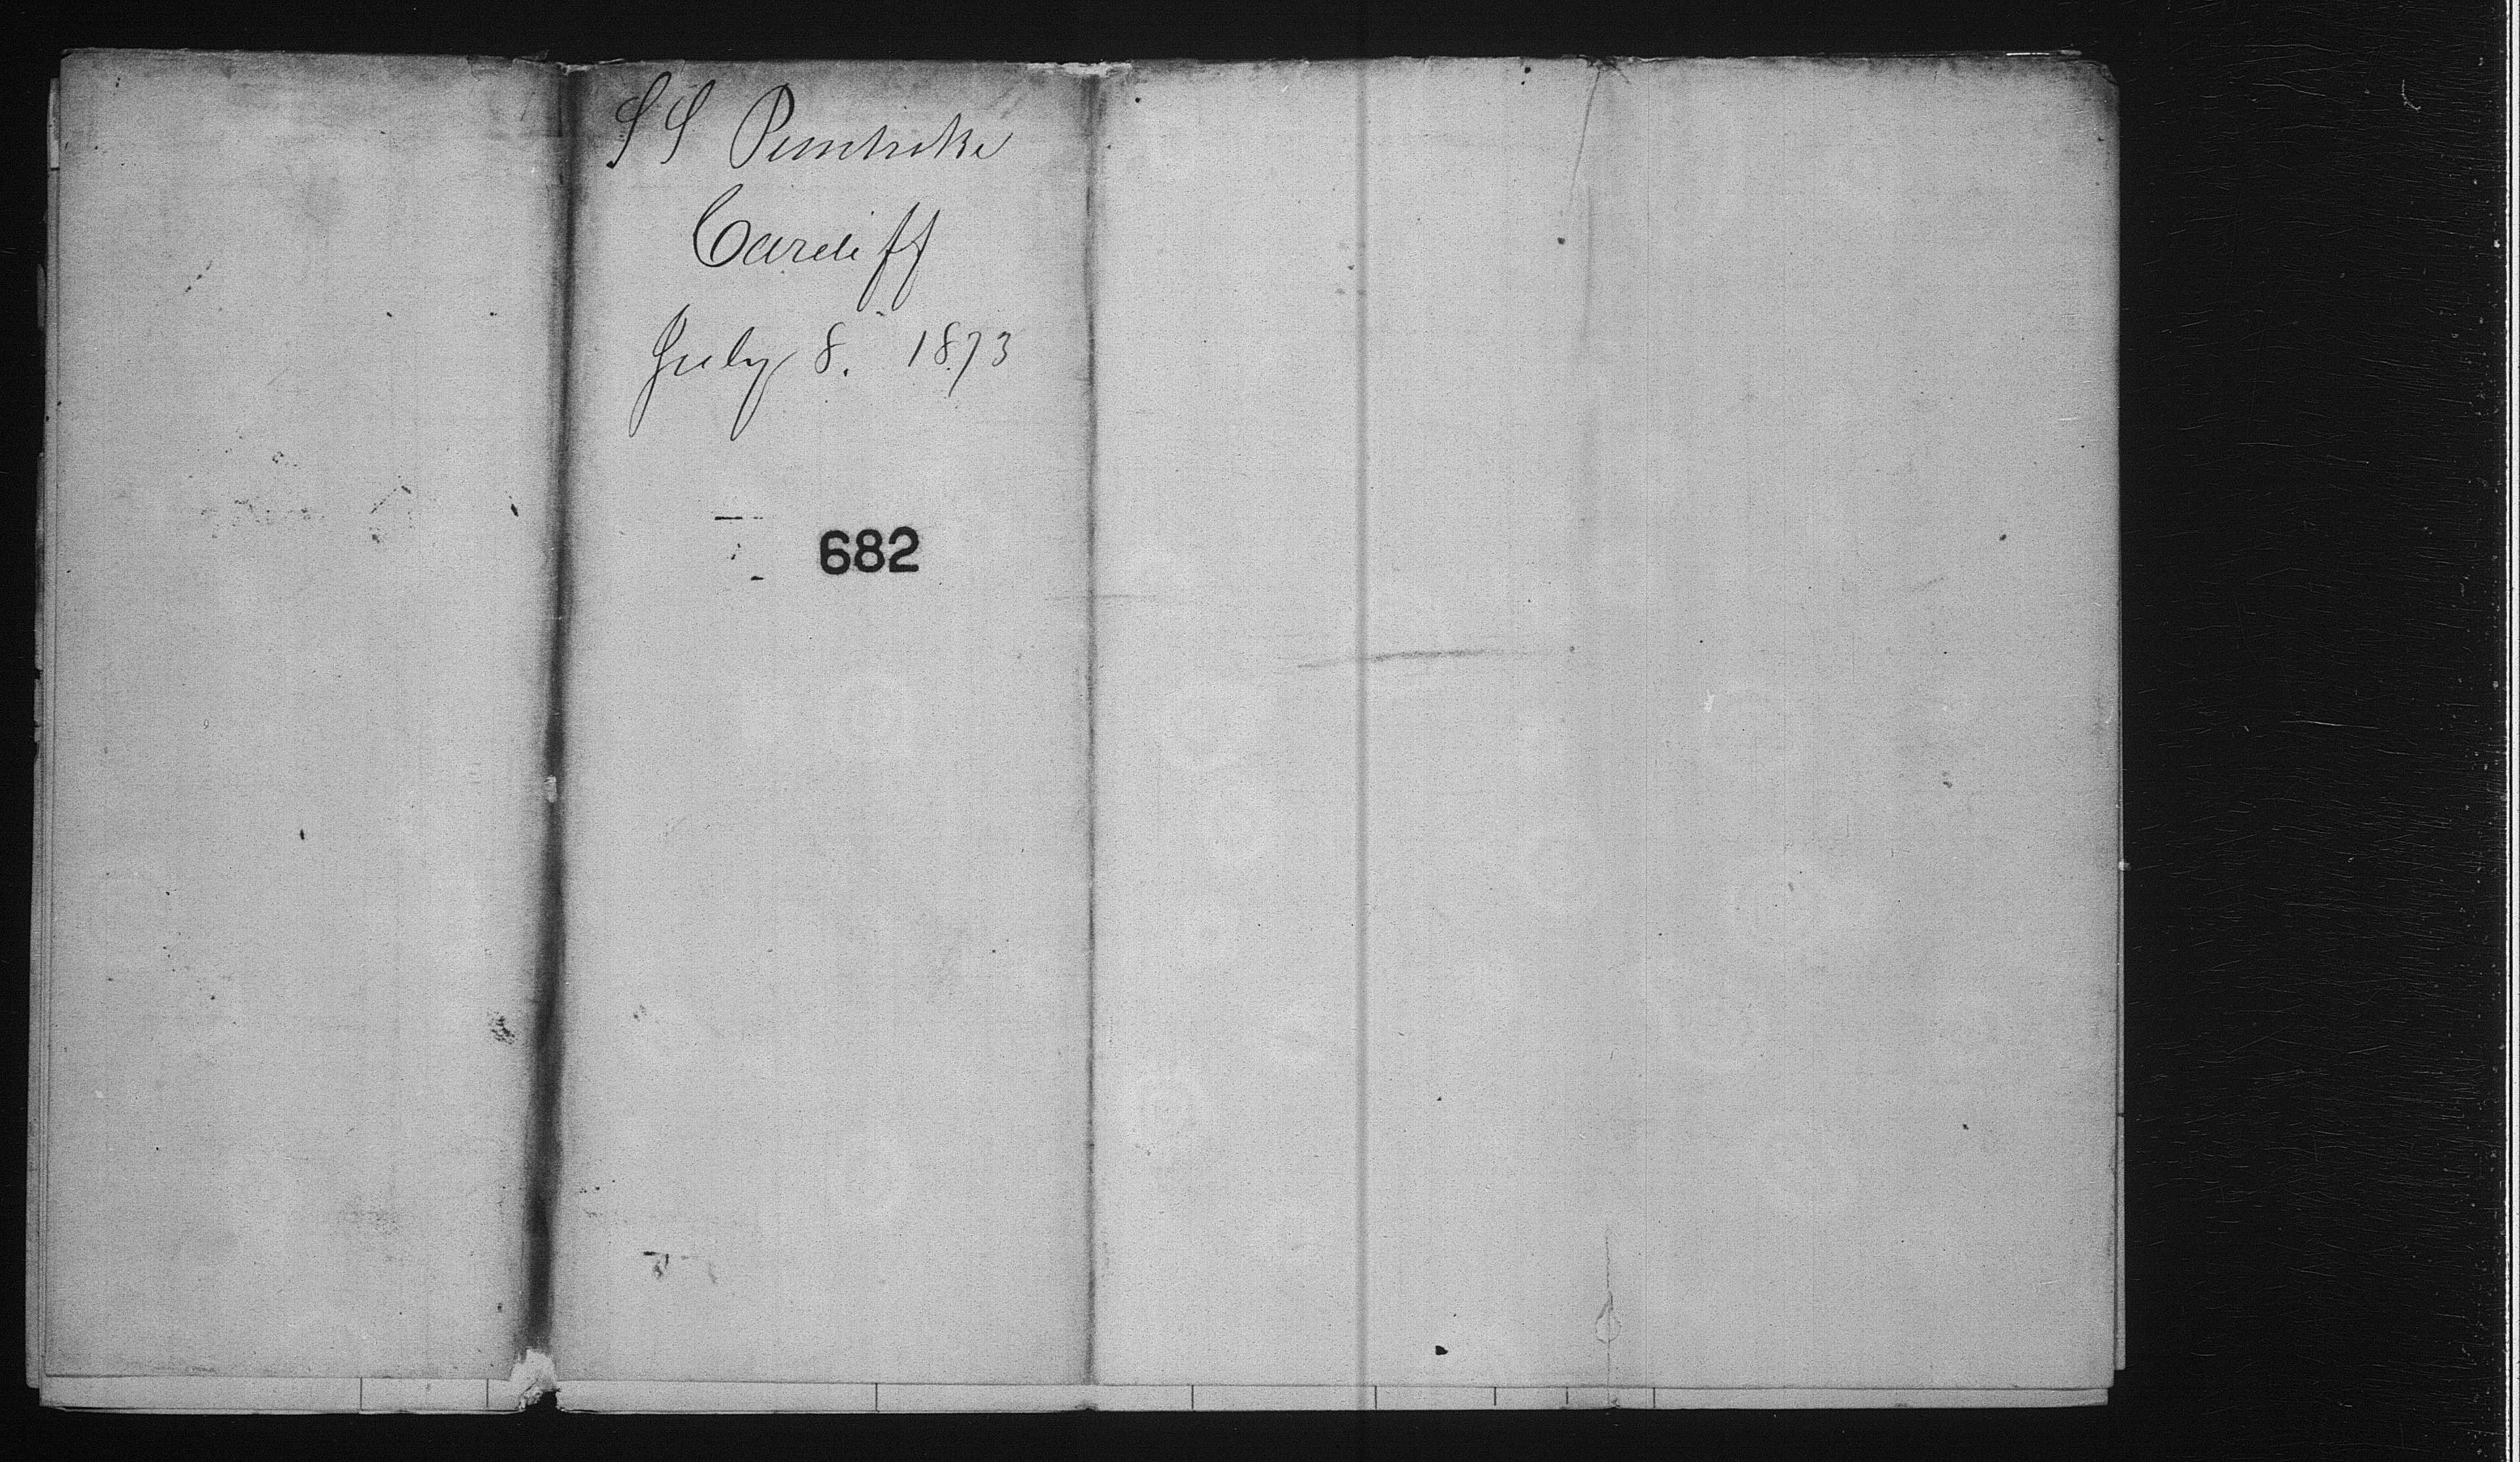 SS Pembroke
Cardiff
July 8. 1873
682